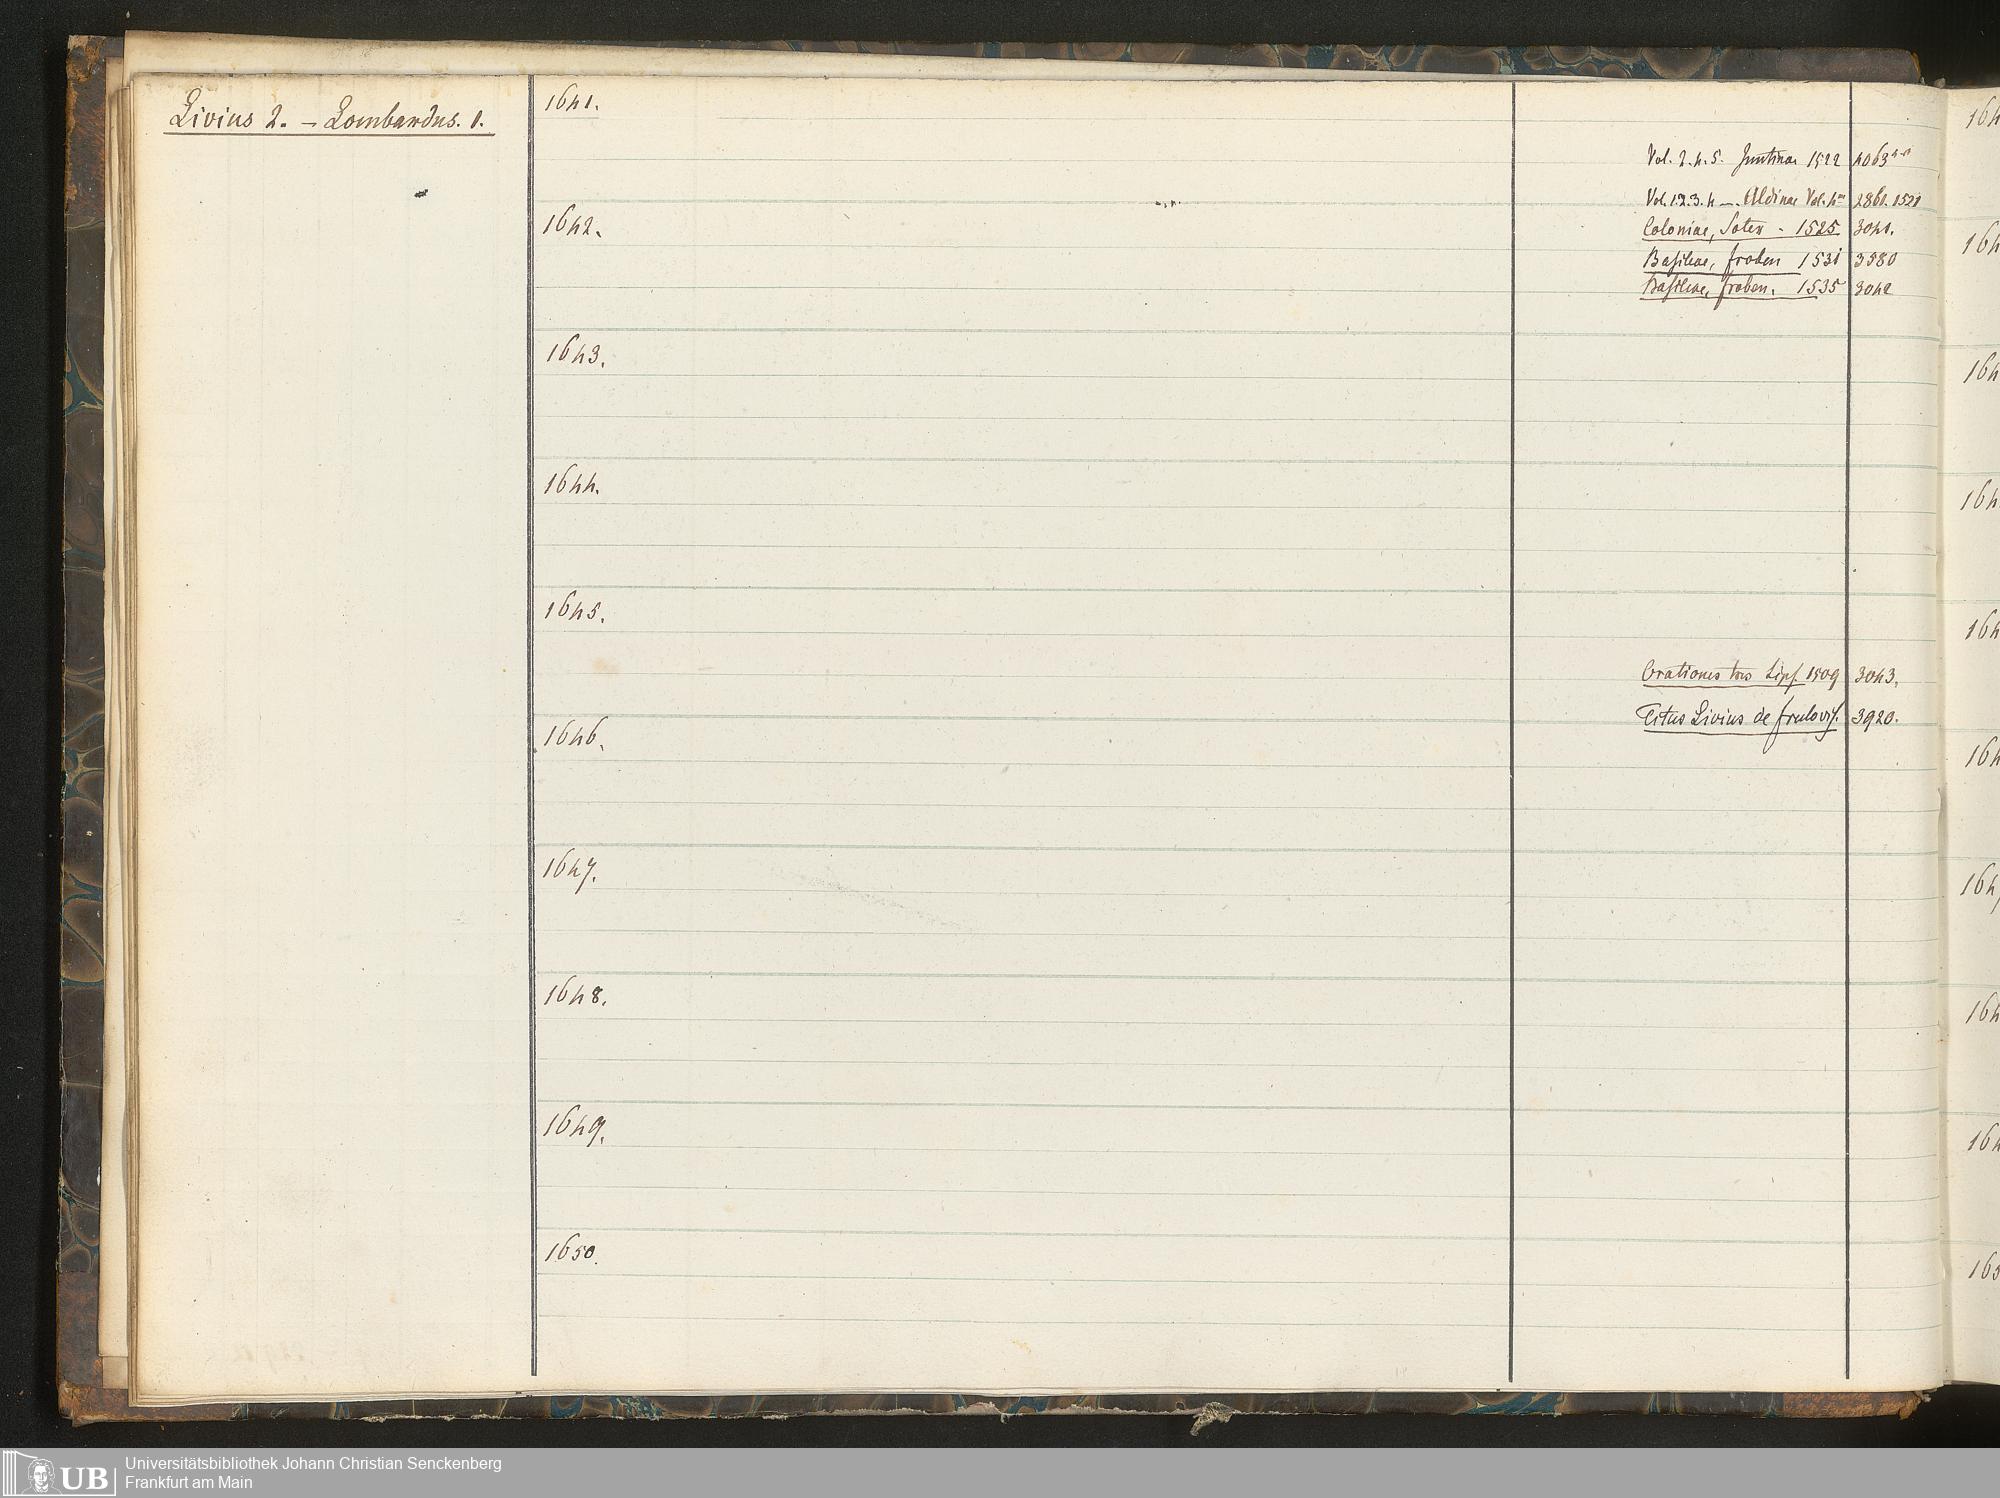 Livius 2. – Lombardus. 1.
1641.
Vol. 2. 4. 5. Juntinae 1522 4063
Vol. 1.2.3.4 –. Aldinae Vol. 4 2861. 1521
1642.
Coloniae, Soter - 1525 3041.
Basileae, Froben 1531 3580
Basileae, Froben. 1535 3042
1643.
1644.
1645.
Orationes tres Lips. 1509 3043.
Titus Livius de Frulovis. 3920.
1646.
1647.
1648.
1649.
1650.
164
164
164
164
164
164
164
164
164
165
UB
Universitätsbibliothek Johann Christian Senckenberg
Frankfurt am Main